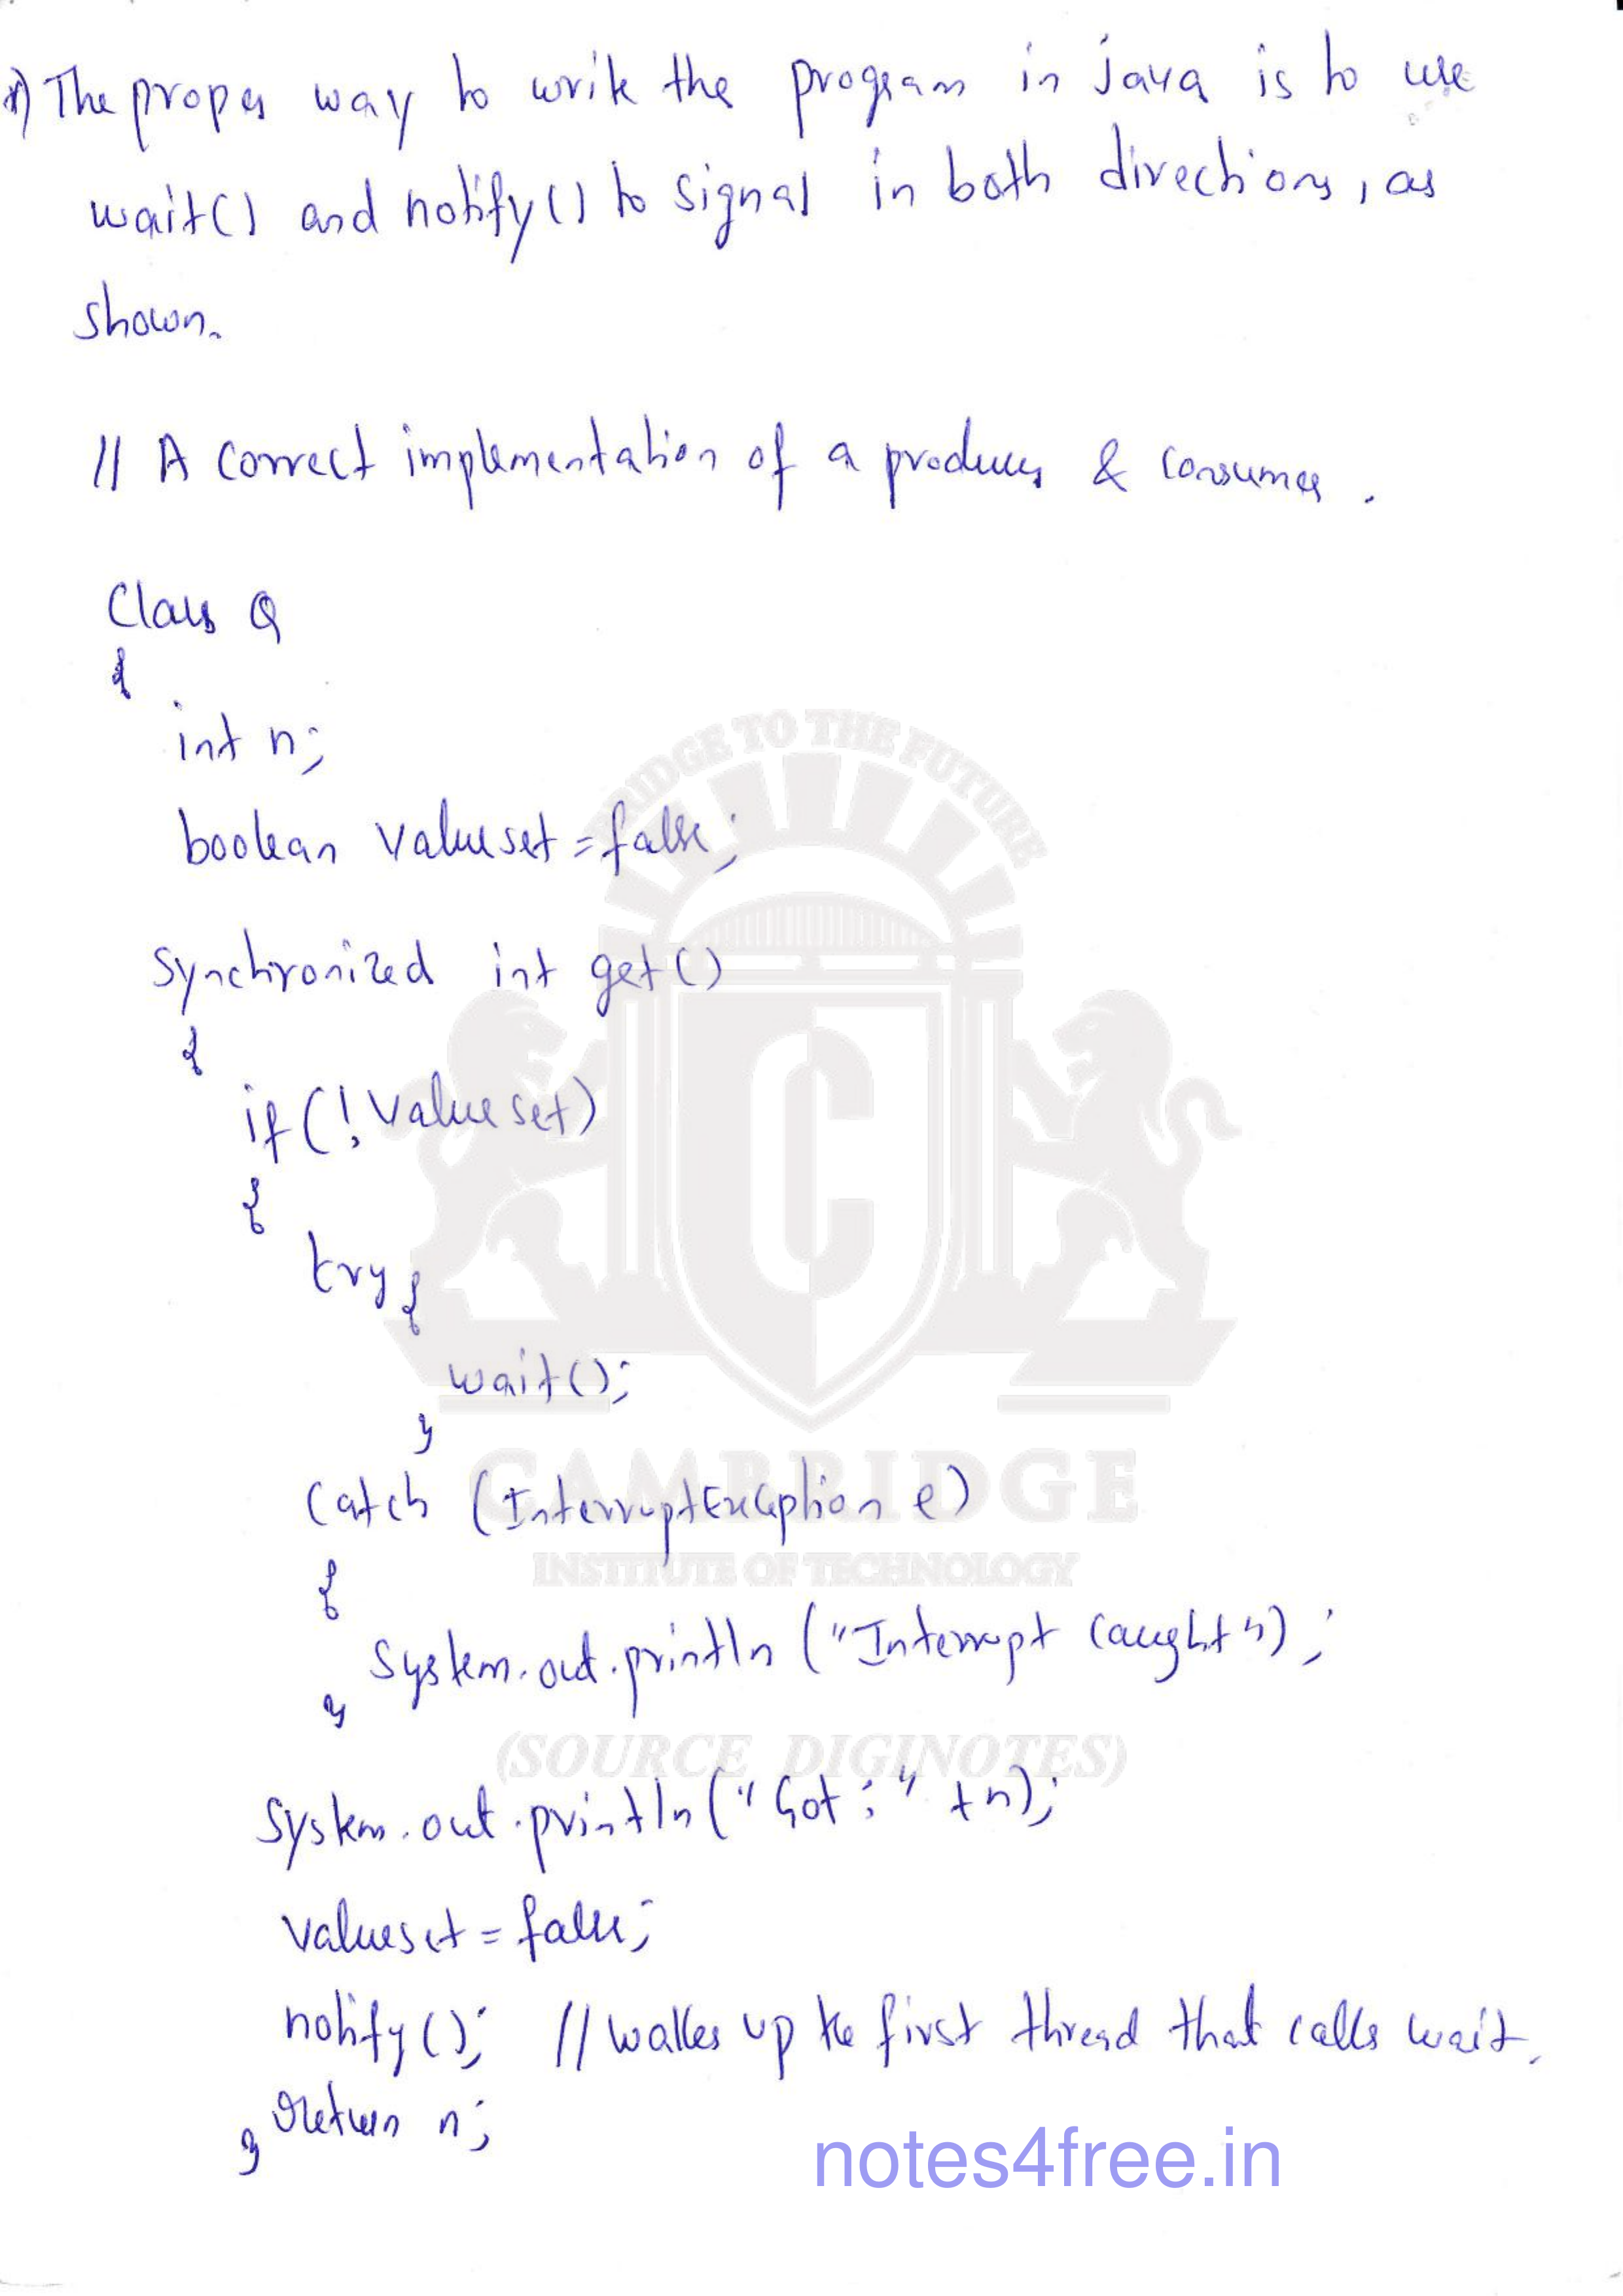 *) The proper way to write the program in Java is to use
wait() and notify() to signal in both directions, as
shown.
// A correct implementation of a producer & consumer.
Class Q
{
int n;
boolean valueset = false;
Synchronized int get()
{
if(!valueset)
{
try{
wait();
}
Catch (InterruptException e)
{
System.out.println ("Interrupt Caught");
}
System.out.println("Got:" +n);
valueset = false;
notify(); // walkes up the first thread that calls wait.
return n;
}
BRIDGE TO THE FUTURE
C
CAMBRIDGE
INSTITUTE OF TECHNOLOGY
(SOURCE DIGINOTES)
notes4free.in